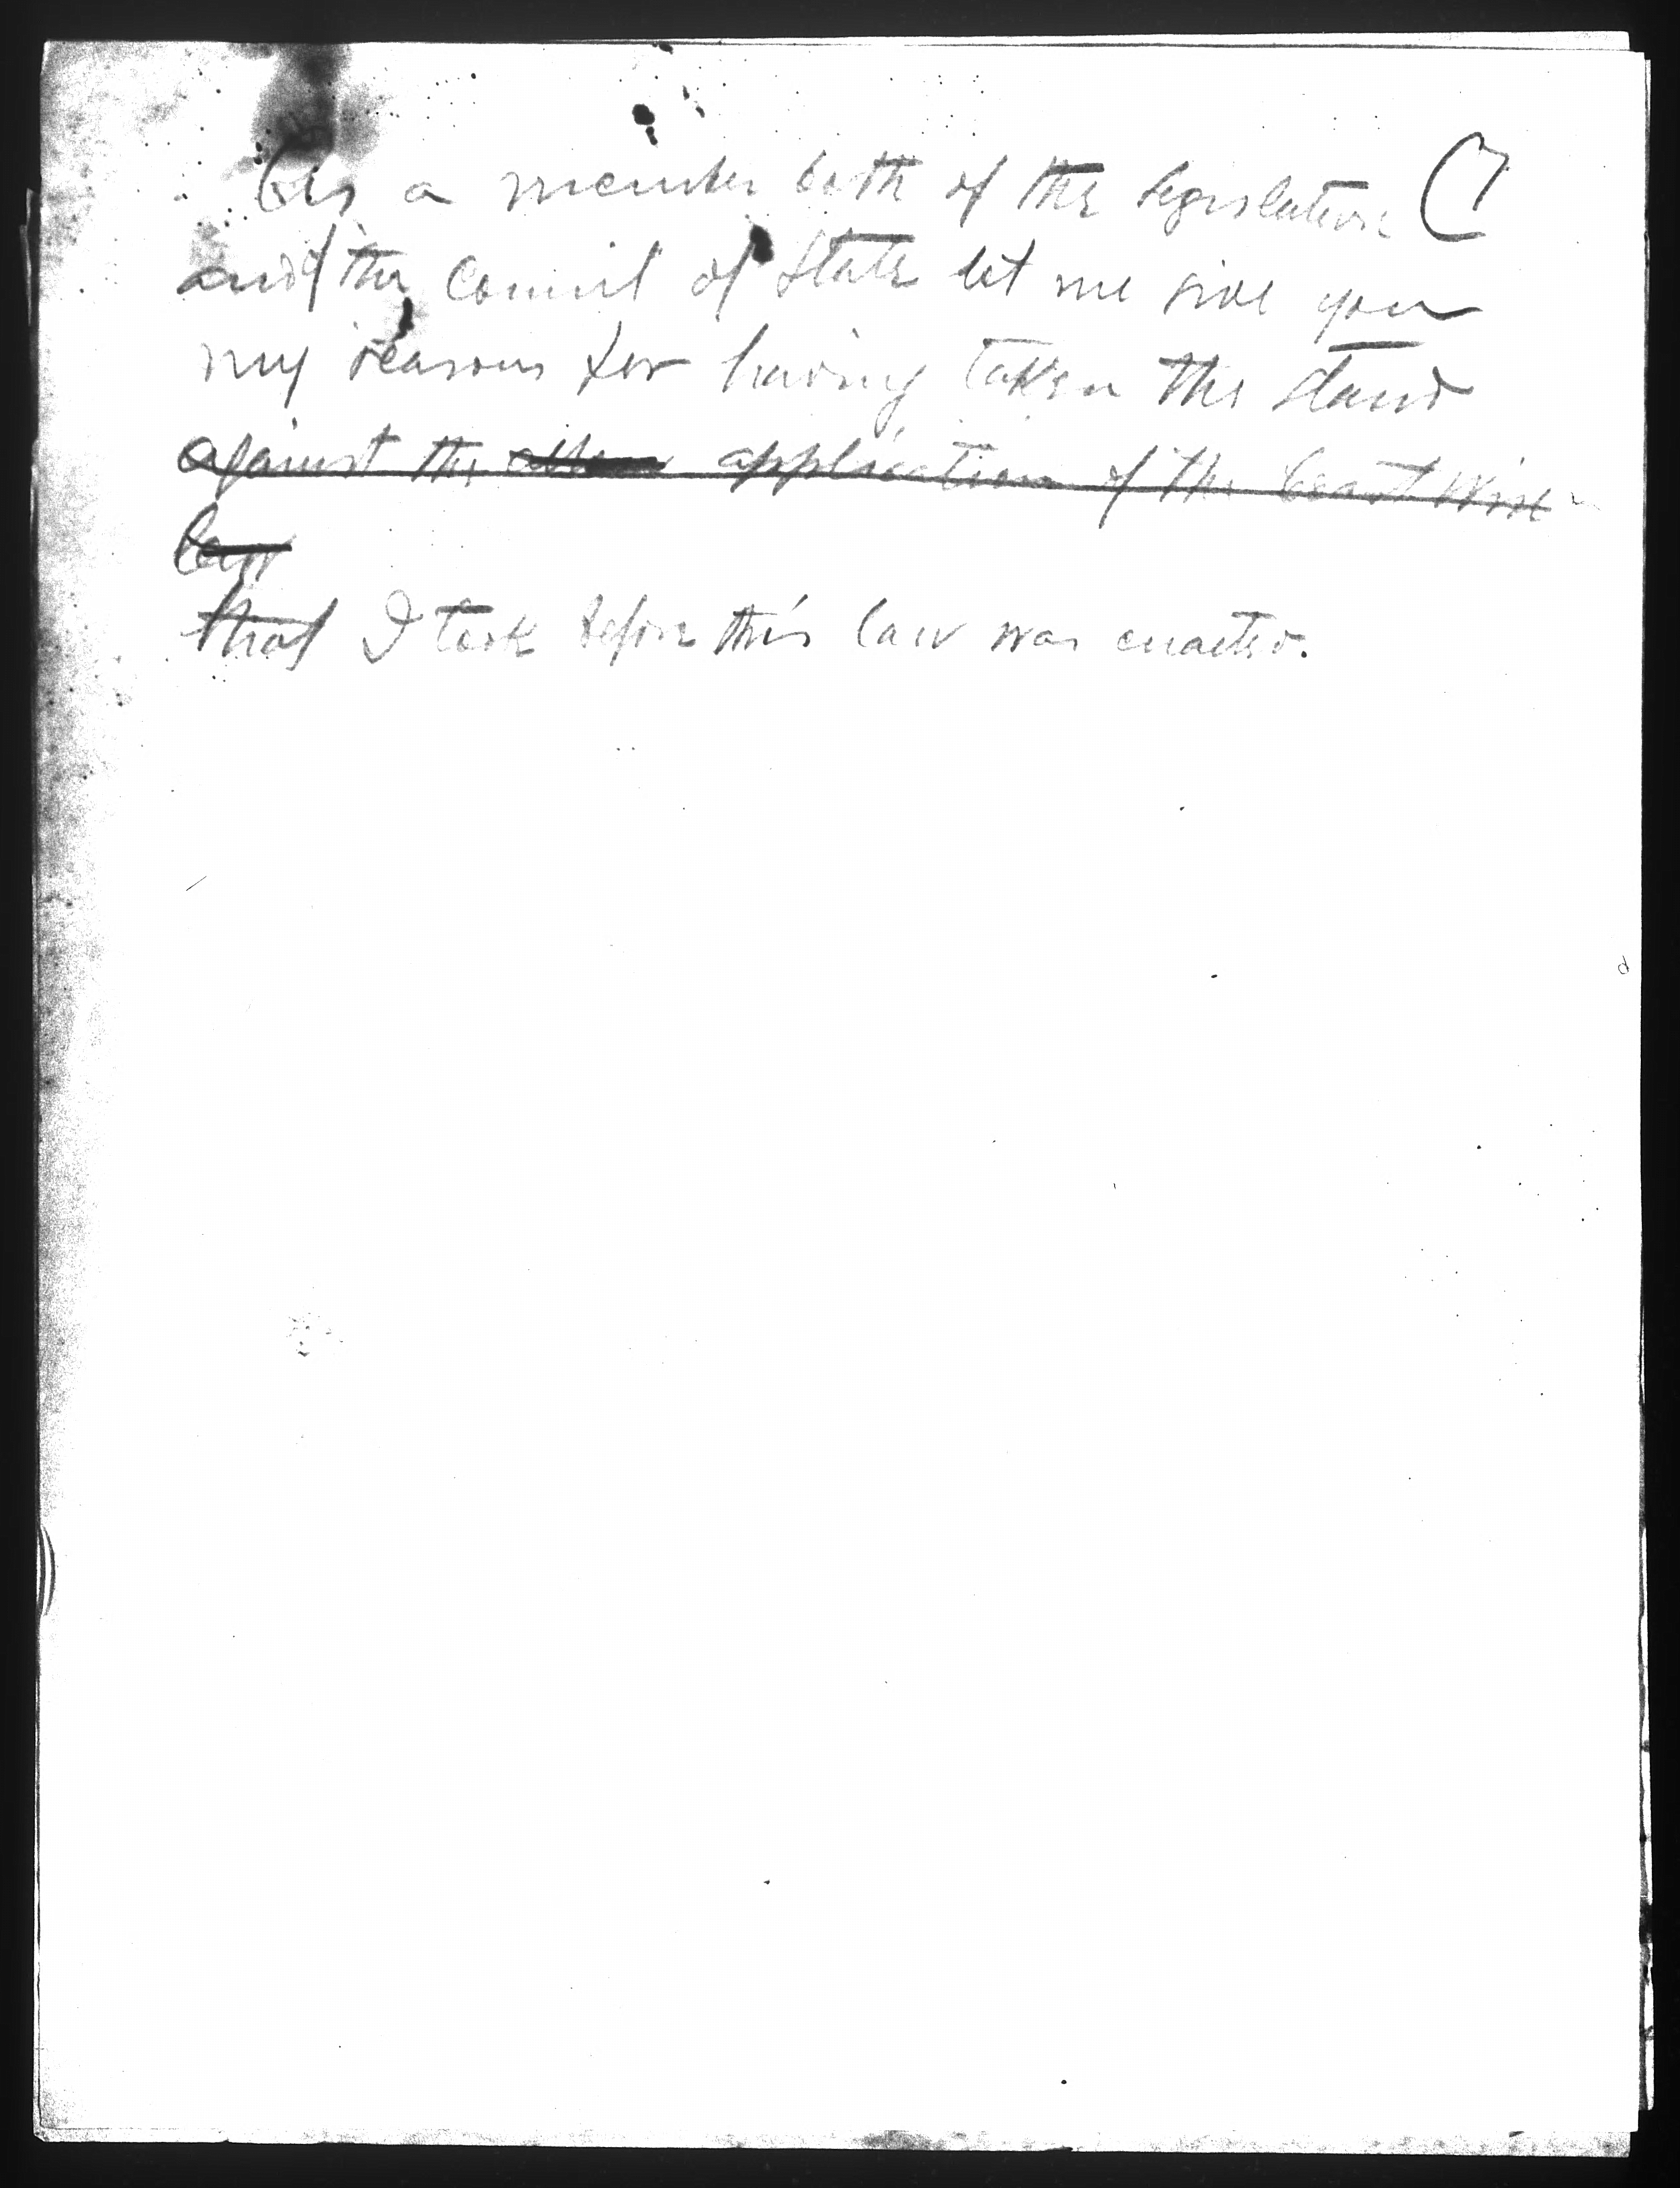 As a member both of the legislature (7
and of the Council of State let me give you
my reasons for having taken the stand
against the application of the Coast wise
law
that I took before this law was enacted.